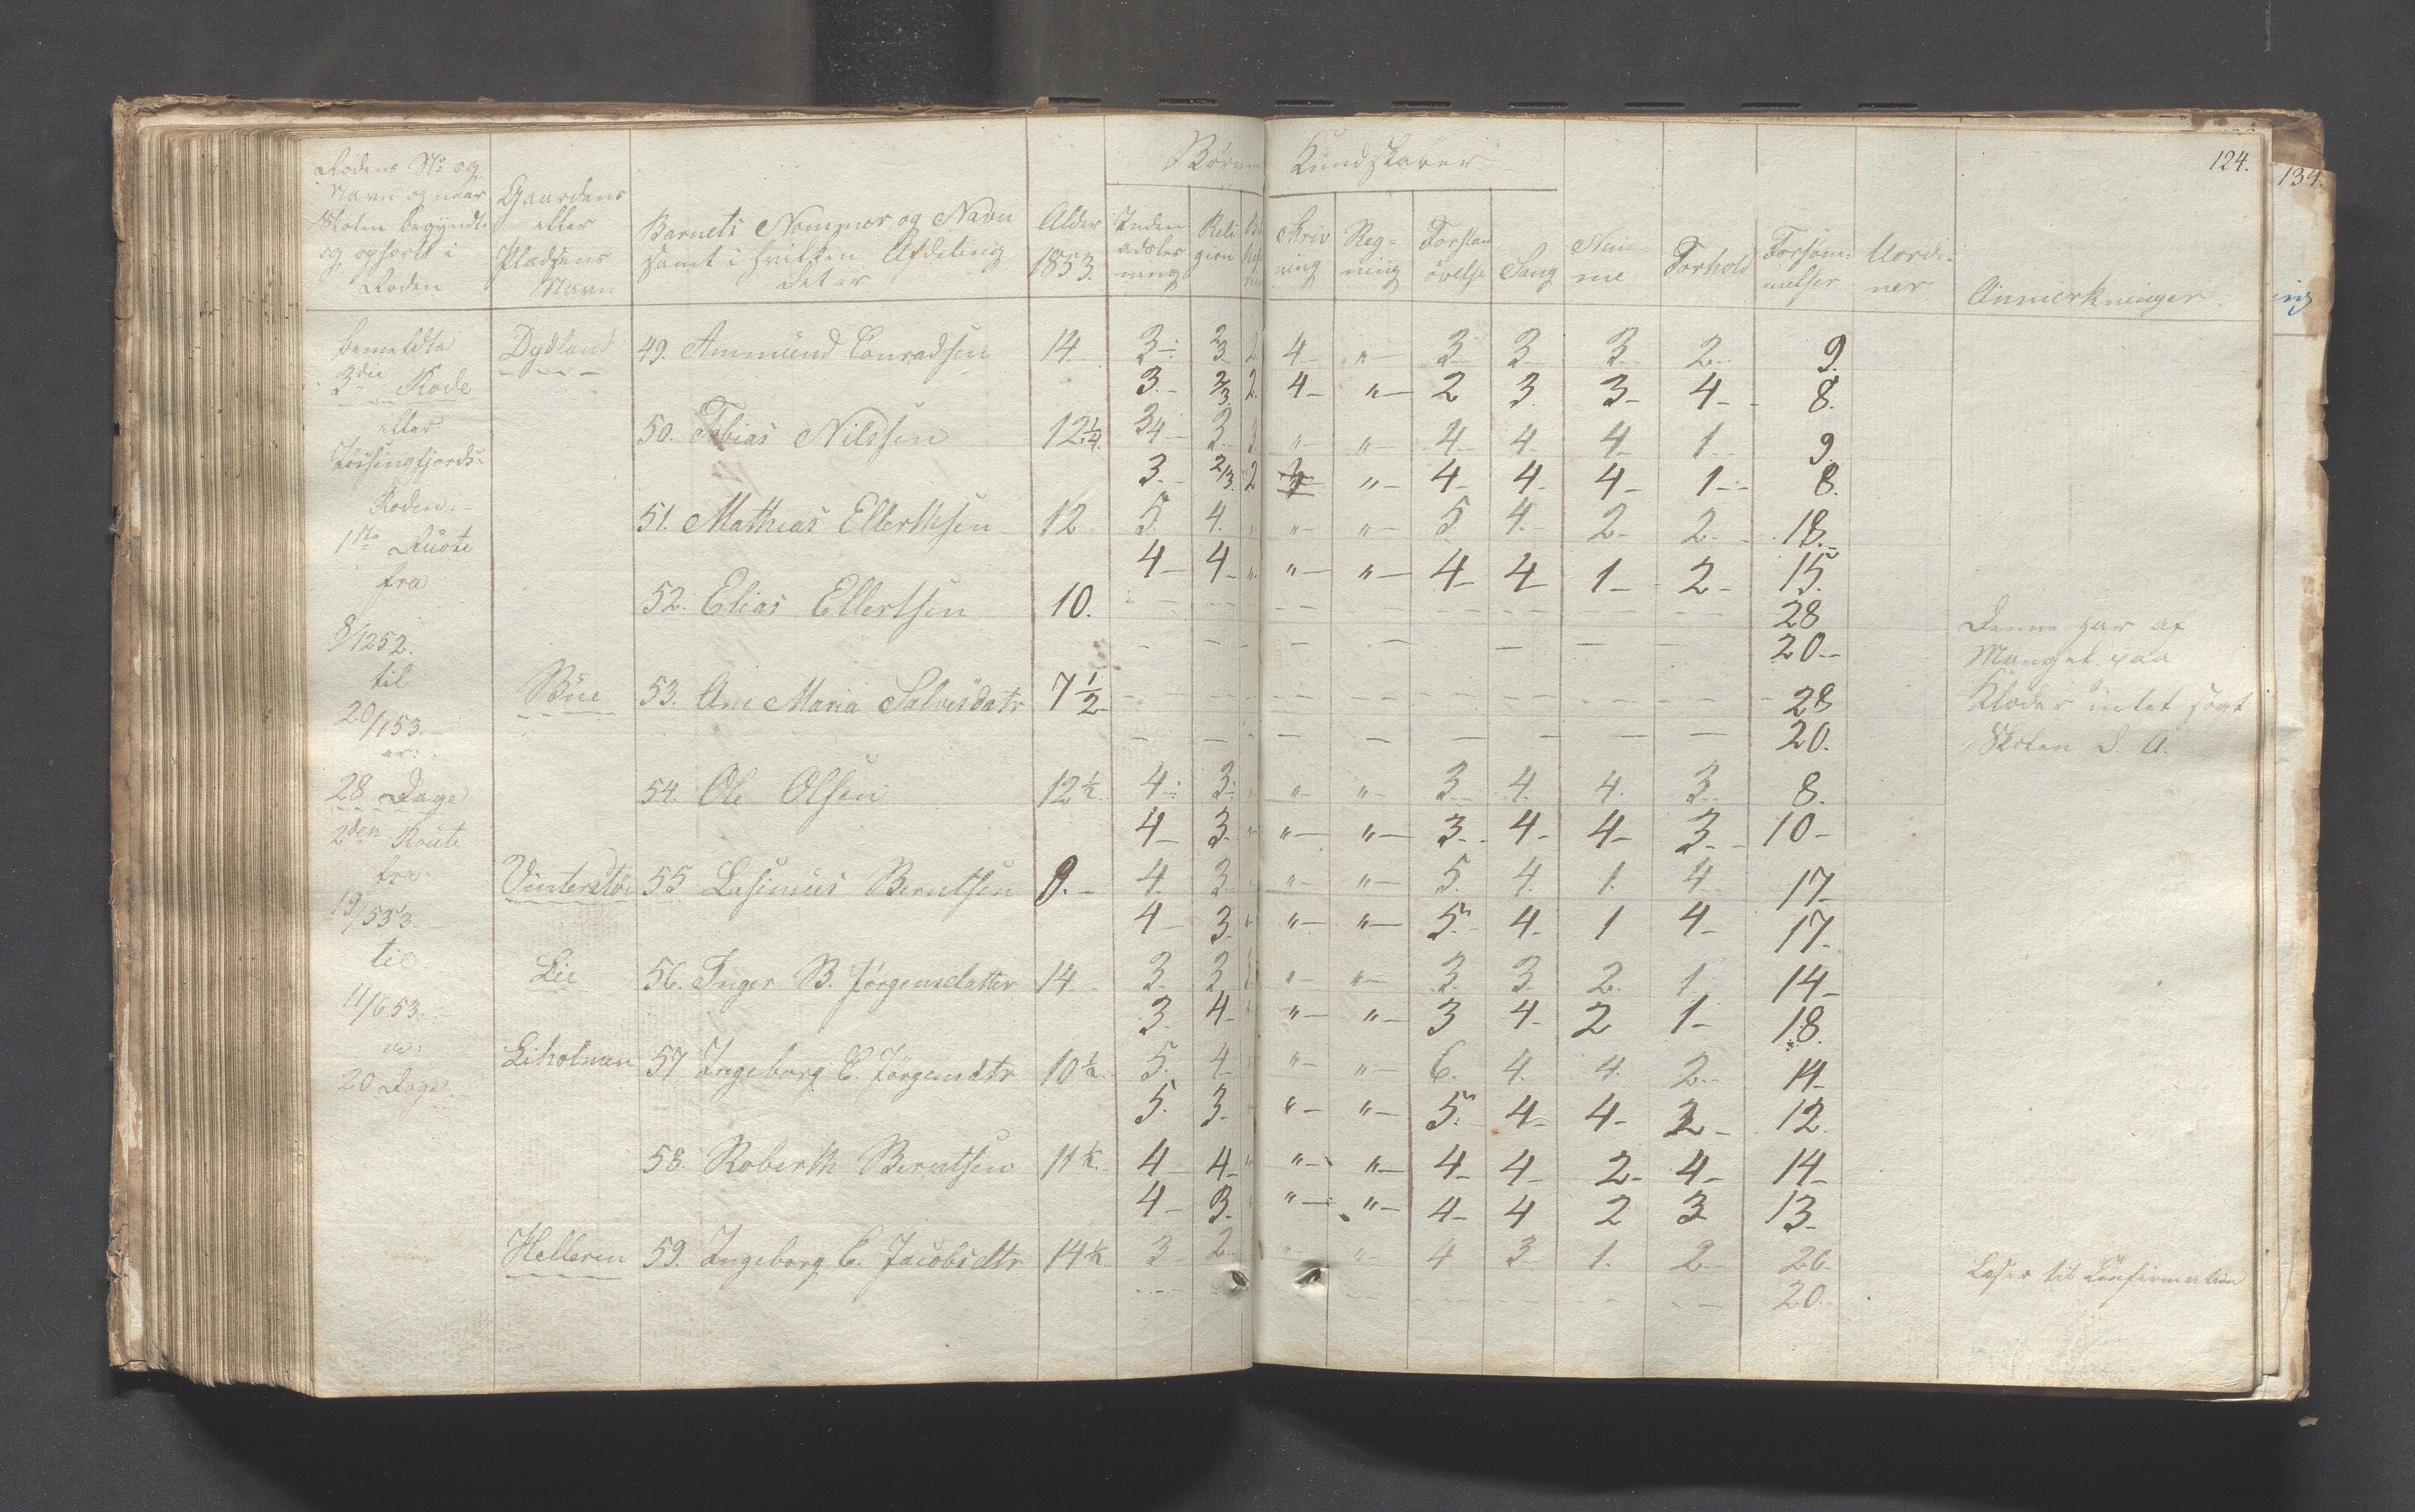 124.
134.
Rodens No og
Navn og naar
Skolen begyndt
og ophørte i
Roden
Gaardens
eller
Pladsens
Navn
Barnets Nommer og Navn
samt i hvilken Afdeling
det er
Alder
1853.
Børne Kundskaber
Inden
adsles
ning
Reli
gion
Skriv
ning
Reg-
ning
Forstan
övelse
Sang
Nem-
me
Forhold
Forsöm-
melser
Uordi-
ner
Anmerkninger
bemeldte
3die Rode
eller
Jössingfjords-
Roden.
1ste Ruote
fra
8/12 52.
til
20/1 53.
er:
28 Dage
2den Route
fra
19/5 53.
til
11/6 53.
er:
20 Dage
Dydland 49. Ammund Conradsen 14 3 2/3 2 4 " 3 3 3 2 9.
3. 2/3. 2. 4 " 2 3 3 4 8.
50. Tobias Nilssen 12 1/4. 3/4 3 3 " " 4 4 4 1 9.
3. 2/3. 2 " 4 4 4 1 8.
51. Mathias Ellerthsen 12 5. 4. " " 5 4. 2 2 18.
4 4 " " " 4 4 1 2 15.
52. Elias Ellertsen 10. 28
20
Denne har af
Mangel paa
Klæder intet søgt
Skolen d. A.
Böe 53. Ane Maria Salvesdatr 7 1/2 28
20.
54. Ole Olsen 12 1/2. 4 3 " " 3 4. 4. 3 8.
4 3. " " " 3 4 4 3 10
Vinterstöe 55 Lasimus Berntsen 9. 4. 3 " " 5. 4. 1. 4 17
4 3. " " " 5 4 1 4 17.
Lie 56. Inger B. Jörgensdatter 14 3. 3 " " 3. 3. 2. 1. 14
3. 4 " " " 3 4 2 1 18.
Liholmen 57 Ingeborg C. Jörgensdtr 10 1/2. 5. 4 " " 6. 4. 4. 2. 14
5. 3. " " 5. 4 4 2 12.
58. Roberth Berntsen 11 1/2. 4 4 " " " 4 4 2 4 14
4 3. " " 4 4 2 3 13
Helleren 59. Ingeborg C. Jacobsdtr 14 1/2 3 2 " " 4 3 1. 2 26.
20.
Læser til Confirmation